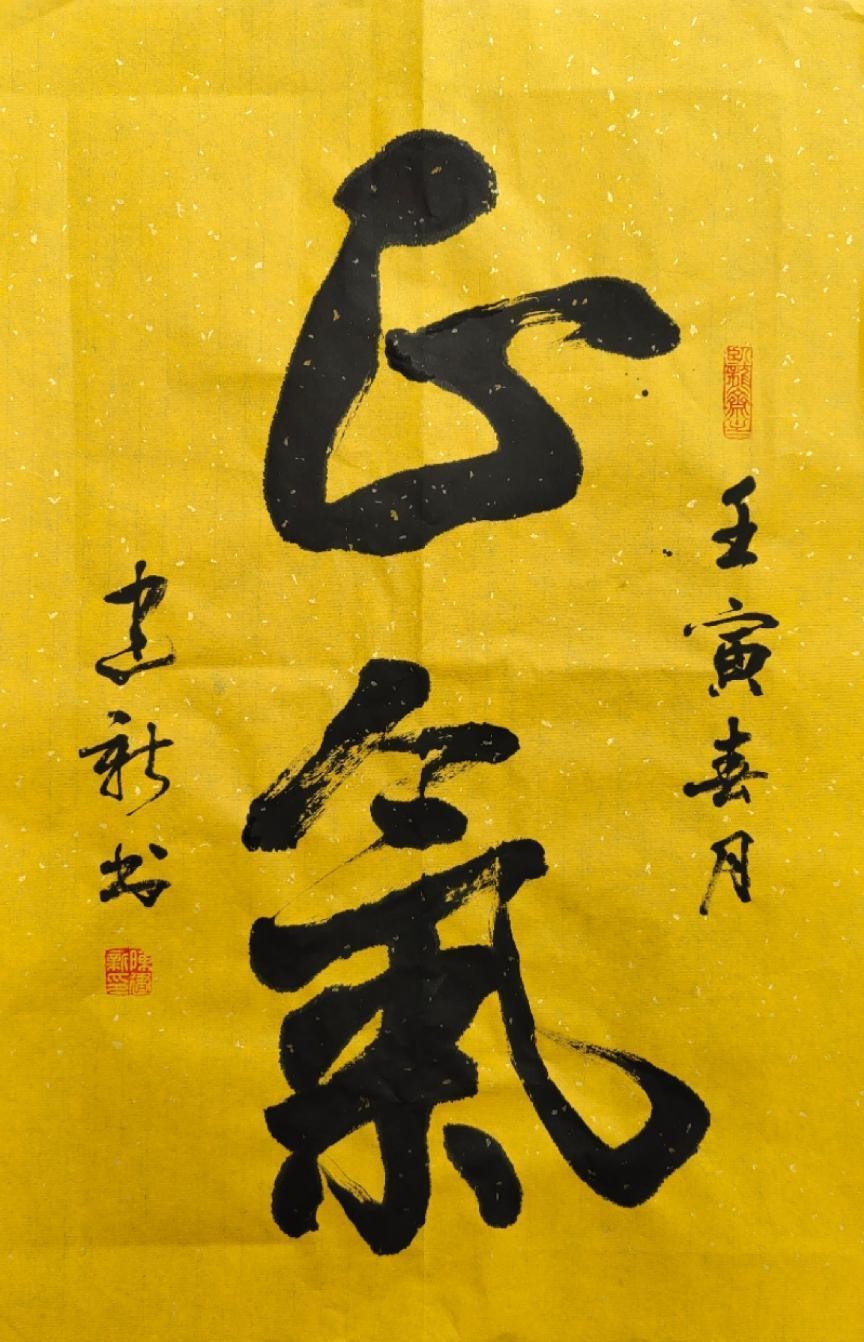 壬寅春月
正氣
建新书